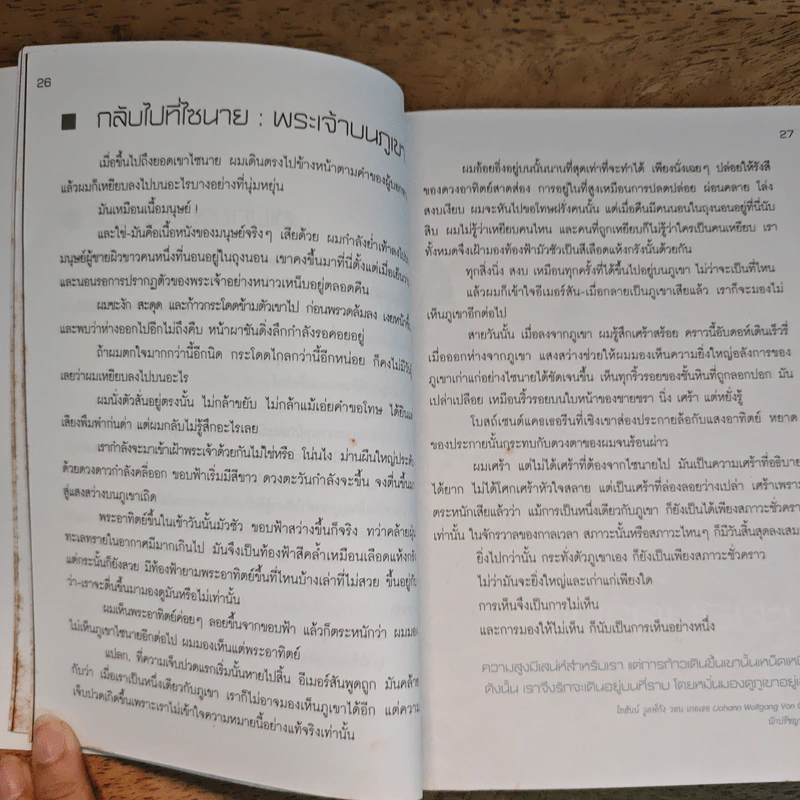 26
กลับไปที่ไซนาย : พระเจ้าบนภูเขา
เมื่อขึ้นไปถึงยอดเขาไซนาย ผมเดินตรงไปข้างหน้าตามคำของผู้
แล้วผมก็เหยียบลงไปบนอะไรบางอย่างที่นุ่มหยุ่น
มันเหมือนเนื้อมนุษย์ !
และใช่-มันคือเนื้อหนังของมนุษย์จริงๆ เสียด้วย ผมกำลังย่ำเท้าลงไป
มนุษย์ผู้ชายผิวขาวคนหนึ่งที่นอนอยู่ในถุงนอน เขาคงขึ้นมาที่นี่ตั้งแต่เมื่อเย็น
และนอนรอการปรากฏตัวของพระเจ้าอย่างหนาวเหน็บอยู่ตลอดคืน
ผมชะงัก สะดุด และก้าวกระโดดข้ามตัวเขาไป ก่อนพรวดล้มลง เงยหน้า
และพบว่าห่างออกไปอีกไม่ถึงคืบ หน้าผาชันดิ่งลึกกำลังรอคอยอยู่
ถ้าผมตกใจมากกว่านี้อีกนิด กระโดดไกลกว่านี้อีกหน่อย ก็คงไม่มี
เลยว่าผมเหยียบลงไปบนอะไร
ผมนั่งตัวสั่นอยู่ตรงนั้น ไม่กล้าขยับ ไม่กล้าแม้เอ่ยคำขอโทษ ได้ยิน
เสียงพึมพำก่นด่า แต่ผมกลับไม่รู้สึกอะไรเลย
เรากำลังจะมาเข้าเฝ้าพระเจ้าด้วยกันไม่ใช่หรือ โน่นไง ม่านผืนใหญ่ประดับ
ด้วยดวงดาวกำลังคลี่ออก ขอบฟ้าเริ่มมีสีขาว ดวงตะวันกำลังจะขึ้น จงตื่นขึ้น
สู่แสงสว่างบนภูเขาเถิด
พระอาทิตย์ขึ้นในเช้าวันนั้นมัวซัว ขอบฟ้าสว่างขึ้นก็จริง ทว่าคล้ายฝุ่น
ทะเลทรายในอากาศมีมากเกินไป มันจึงเป็นท้องฟ้าสีคล้ำเหมือนเลือดแห้งกรัง
แต่กระนั้นก็ยังสวย มีท้องฟ้ายามพระอาทิตย์ขึ้นที่ไหนบ้างเล่าที่ไม่สวย ขึ้นอยู่กับ
ว่า-เราจะตื่นขึ้นมามองดูมันหรือไม่เท่านั้น
ผมเห็นพระอาทิตย์ค่อยๆ ลอยขึ้นจากขอบฟ้า แล้วก็ตระหนักว่า ผมมอง
ไม่เห็นภูเขาไซนายอีกต่อไป ผมมองเห็นแต่พระอาทิตย์
แปลก, ที่ความเจ็บปวดแรกเริ่มนั้นหายไปสิ้น อีเมอร์สันพูดถูก มันคล้าย
กับว่า เมื่อเราเป็นหนึ่งเดียวกับภูเขา เราก็ไม่อาจมองเห็นภูเขาได้อีก แต่ความ
เจ็บปวดเกิดขึ้นเพราะเราไม่เข้าใจความหมายนี้อย่างแท้จริงเท่านั้น
27
ผมอ้อยอิ่งอยู่บนนั้นนานที่สุดเท่าที่จะทำได้ เพียงนั่งเฉยๆ ปล่อยให้รังสี
ของดวงอาทิตย์สาดส่อง การอยู่ในที่สูงเหมือนการปลดปล่อย ผ่อนคลาย โล่ง
สงบเงียบ ผมจะหันไปขอโทษฝรั่งคนนั้น แต่เมื่อคืนมีคนนอนในถุงนอนอยู่ที่นี่นับ
สิบ ผมไม่รู้ว่าเหยียบคนไหน และคนที่ถูกเหยียบก็ไม่รู้ว่าใครเป็นคนเหยียบ เรา
ทั้งหมดจึงเฝ้ามองท้องฟ้ามัวซัวเป็นสีเลือดแห้งกรังนั้นด้วยกัน
ทุกสิ่งนิ่ง สงบ เหมือนทุกครั้งที่ได้ขึ้นไปอยู่บนภูเขา ไม่ว่าจะเป็นที่ไหน
แล้วผมก็เข้าใจอีเมอร์สัน-เมื่อกลายเป็นภูเขาเสียแล้ว เราก็จะมองไม่
เห็นภูเขาอีกต่อไป
สายวันนั้น เมื่อลงจากภูเขา ผมรู้สึกเศร้าสร้อย คราวนี้อับดอห์เดินเร็วรี่
เมื่อออกห่างจากภูเขา แสงสว่างช่วยให้ผมมองเห็นความยิ่งใหญ่อลังการของ
ภูเขาเก่าแก่อย่างไซนายได้ชัดเจนขึ้น เห็นทุกริ้วรอยของชั้นหินที่ถูกลอกปอก มัน
เปล่าเปลือย เหมือนริ้วรอยบนใบหน้าของชายชรา นิ่ง เศร้า แต่หยั่งรู้
โบสถ์เซนต์แคธเธอรีนที่เชิงเขาส่องประกายล้อกับแสงอาทิตย์ หยาด
ของประกายนั้นกระทบกับดวงตาของผมจนร้อนผ่าว
ผมเศร้า แต่ไม่ได้เศร้าที่ต้องจากไซนายไป มันเป็นความเศร้าที่อธิบาย
ได้ยาก ไม่ได้โศกเศร้าหัวใจสลาย แต่เป็นเศร้าที่ล่องลอยว่างเปล่า เศร้าเพราะ
ตระหนักเสียแล้วว่า แม้การเป็นหนึ่งเดียวกับภูเขา ก็ยังเป็นได้เพียงสภาวะชั่วครา
เท่านั้น ในจักรวาลของกาลเวลา สภาวะนั้นหรือสภาวะไหนๆ ก็มีวันสิ้นสุดลงเสม
ยิ่งไปกว่านั้น กระทั่งตัวภูเขาเอง ก็ยังเป็นเพียงสภาวะชั่วคราว
ไม่ว่ามันจะยิ่งใหญ่และเก่าแก่เพียงใด
การเห็นจึงเป็นการไม่เห็น
และการมองให้ไม่เห็น ก็นับเป็นการเห็นอย่างหนึ่ง
ความสูงมีเสน่ห์สำหรับเรา แต่การก้าวเดินขึ้นเขานั้นเหน็ดเหนื
ดังนั้น เราจึงรักจะเดินอยู่บนที่ราบ โดยหมั่นมองดูภูเขาอยู่
โยฮันน์ วูลฟ์กัง วอน เกอเธอ (Johann Wolfgang Von
นักปรัชญา